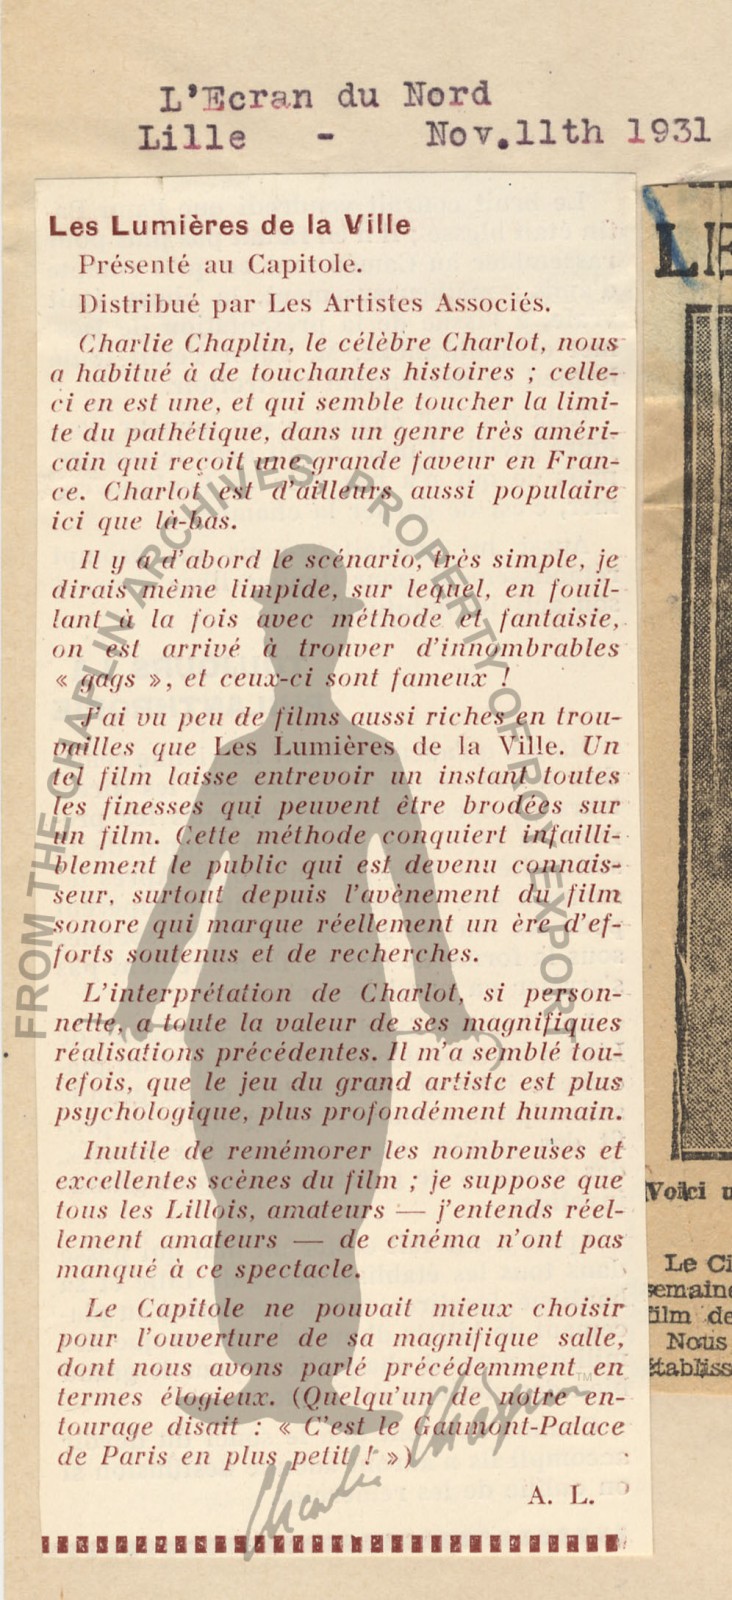 L'Ecran du Nord
Lille - Nov.11th 1931
Les Lumières de la Ville
Présenté au Capitole.
Distribué par Les Artistes Associés.
Charlie Chaplin, le célèbre Charlot, nous
a habitué à de touchantes histoires ; celle-
ci en est une, et qui semble toucher la limi-
te du pathétique, dans un genre très améri-
cain qui reçoit une grande faveur en Fran-
ce. Charlot est d'ailleurs aussi populaire
ici que là-bas.
Il y a d'abord le scénario, très simple, je
dirais même limpide, sur lequel, en fouil-
lant à la fois avec méthode et fantaisie,
on est arrivé à trouver d'innombrables
« gags », et ceux-ci sont fameux !
J'ai vu peu de films aussi riches en trou-
vailles que Les Lumières de la Ville. Un
tel film laisse entrevoir un instant toutes
les finesses qui peuvent être brodées sur
un film. Cette méthode conquiert infailli-
blement le public qui est devenu connais-
seur, surtout depuis l'avènement du film
sonore qui marque réellement un ère d'ef-
forts soutenus et de recherches.
L'interprétation de Charlot, si person-
nelle, a toute la valeur de ses magnifiques
réalisations précédentes. Il m'a semblé tou-
tefois, que le jeu du grand artiste est plus
psychologique, plus profondément humain.
Inutile de remémorer les nombreuses et
excellentes scènes du film ; je suppose que
tous les Lillois, amateurs — j'entends réel-
lement amateurs — de cinéma n'ont pas
manqué à ce spectacle.
Le Capitole ne pouvait mieux choisir
pour l'ouverture de sa magnifique salle,
dont nous avons parlé précédemment en
termes élogieux. (Quelqu'un de notre en-
tourage disait : « C'est le Gaumont-Palace
de Paris en plus petit ! »)
A. L.
FROM THE CHAPLIN ARCHIVES PROPERTY OF ROY EXPORT
Charlie Chaplin
TM
LE
Voici u
Le Ci
semaine
film de
Nous
établiss